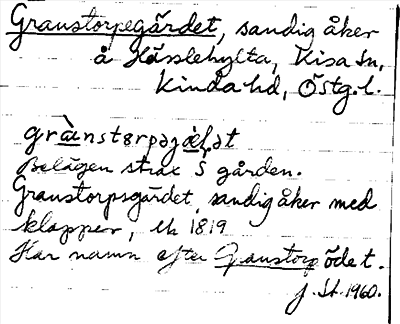 Granstorpegärdet, sandig åker
å Hässlehylta, Kisa sn,
Kinda hd, Östg.l.
grànstɘrpəgä̀ḷət
Belägen strax S gården.
Granstorpsgärdet, sandig åker med
klapper, LSk 1819
Har namn efter Granstorp öde t.
J. St. 1960.